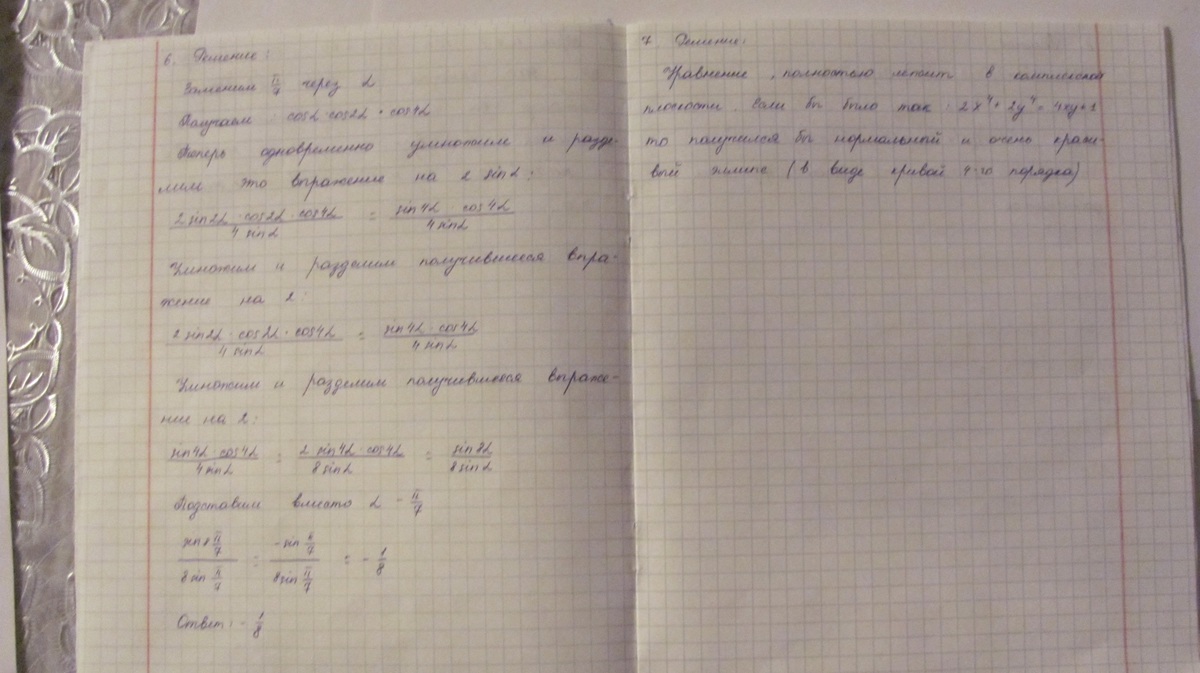 6. Решение:
Заменим π/7 через α
Получаем: cosα·cos2α·cos4α
Теперь одновременно умножим и разде-
лим это выражение на 2 sinα:
2 sin2α·cos2α·cos4α / 4 sinα = sin4α·cos4α / 4 sinα
Умножим и разделим получившееся выра-
жение на 2:
2 sin2α·cos2α·cos4α / 4 sinα = sin4α·cos4α / 4 sinα
Умножим и разделим получившееся выраже-
ние на 2:
sin4α·cos4α / 4 sinα = 2 sin4α·cos4α / 8 sinα = sin8α / 8 sinα
Подставим вместо α - π/7
sin8 π/7 / 8 sin π/7 = -sin π/7 / 8 sin π/7 = - 1/8
Ответ: - 1/8
7 Решение:
Уравнение, полностью лежит в комплексной
плоскости. Если бы было так: 2x⁴+2y⁴=4xy+1
то получился бы нормальной и очень краси-
вый эллипс (в виде кривой 4-го порядка)